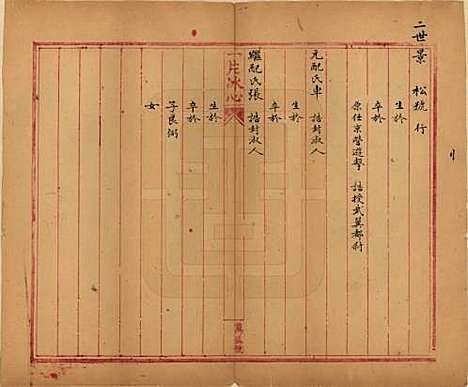 二世景
松號 行
生於
卒於
原任京營遊擊 誥授武翼都尉
元配氏車 誥封淑人
生於
卒於
一片冰心
繼配氏張 誥封淑人
生於
卒於
子良弼
女